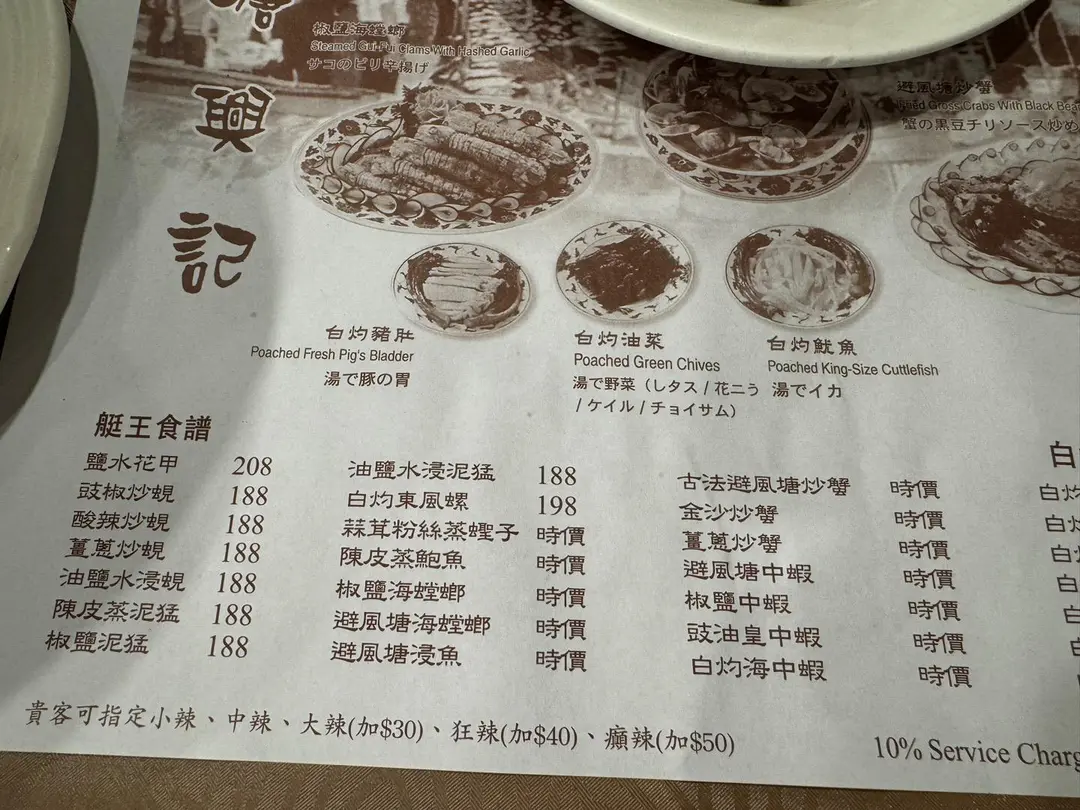 椒鹽海螳螂
Steamed Gui-Fui Clams With Hashed Garlic
サコのピリ辛揚げ
避風塘炒蟹
Fried Gross Crabs With Black Bea
蟹の黒豆チリソース炒め
興
記
白灼豬肚
Poached Fresh Pig's Bladder
湯で豚の胃
白灼油菜
Poached Green Chives
湯で野菜（しタス / 花ニう
/ ケイル / チョイサム）
白灼魷魚
Poached King-Size Cuttlefish
湯でイカ
艇王食譜
鹽水花甲 208
豉椒炒蜆 188
酸辣炒蜆 188
薑蔥炒蜆 188
油鹽水浸蜆 188
陳皮蒸泥猛 188
椒鹽泥猛 188
油鹽水浸泥猛 188
白灼東風螺 198
蒜茸粉絲蒸蟶子 時價
陳皮蒸鮑魚 時價
椒鹽海螳螂 時價
避風塘海螳螂 時價
避風塘浸魚 時價
古法避風塘炒蟹 時價
金沙炒蟹 時價
薑蔥炒蟹 時價
避風塘中蝦 時價
椒鹽中蝦 時價
豉油皇中蝦 時價
白灼海中蝦 時價
白
白灼
白灼
白灼
白
貴客可指定小辣、中辣、大辣(加$30)、狂辣(加$40)、癲辣(加$50)
10% Service Charg